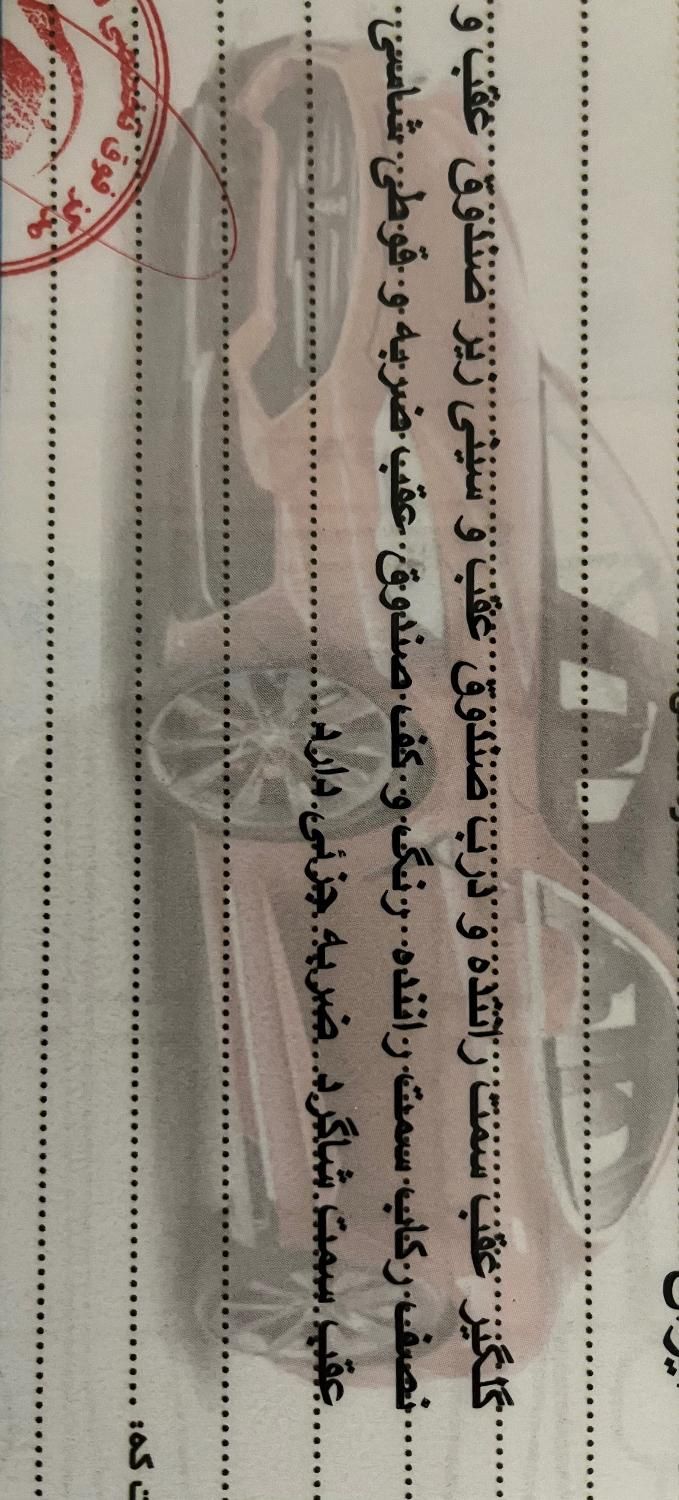 گلگیر عقب سمت راننده و درب صندوق عقب و سینی زیر صندوق عقب و
نصف رکاب سمت راننده رنگ و کف صندوق عقب ضربه و قوطی شاسی
عقب سمت شاگرد ضربه جزئی دارد
ت که:
مرکز فوق تخصصی